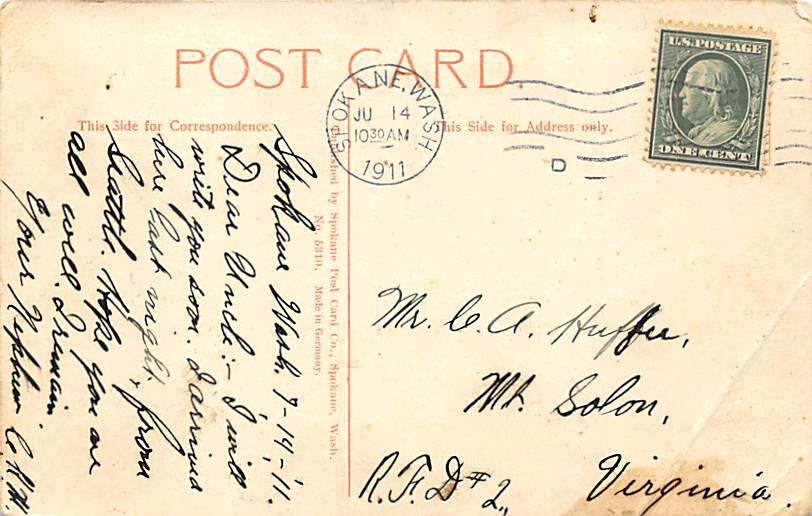 POST CARD.
This Side for Correspondence.
This Side for Address only.
SPOKANE, WASH.
JU 14
10 30 AM
1911
D
U.S. POSTAGE
ONE CENT
Published by Spokane Post Card Co., Spokane, Wash.
No. 5310. Made in Germany.
Spokane Wash. 7-14-'11.
Dear Uncle:- I will
write you soon. I arrived
here last night, from
Seattle. Hope you are
all well. I remain
Your Nephew C.R.H.
Mr. C. A. Huffer,
Mt. Solon,
R.F.D # 2,
Virginia.